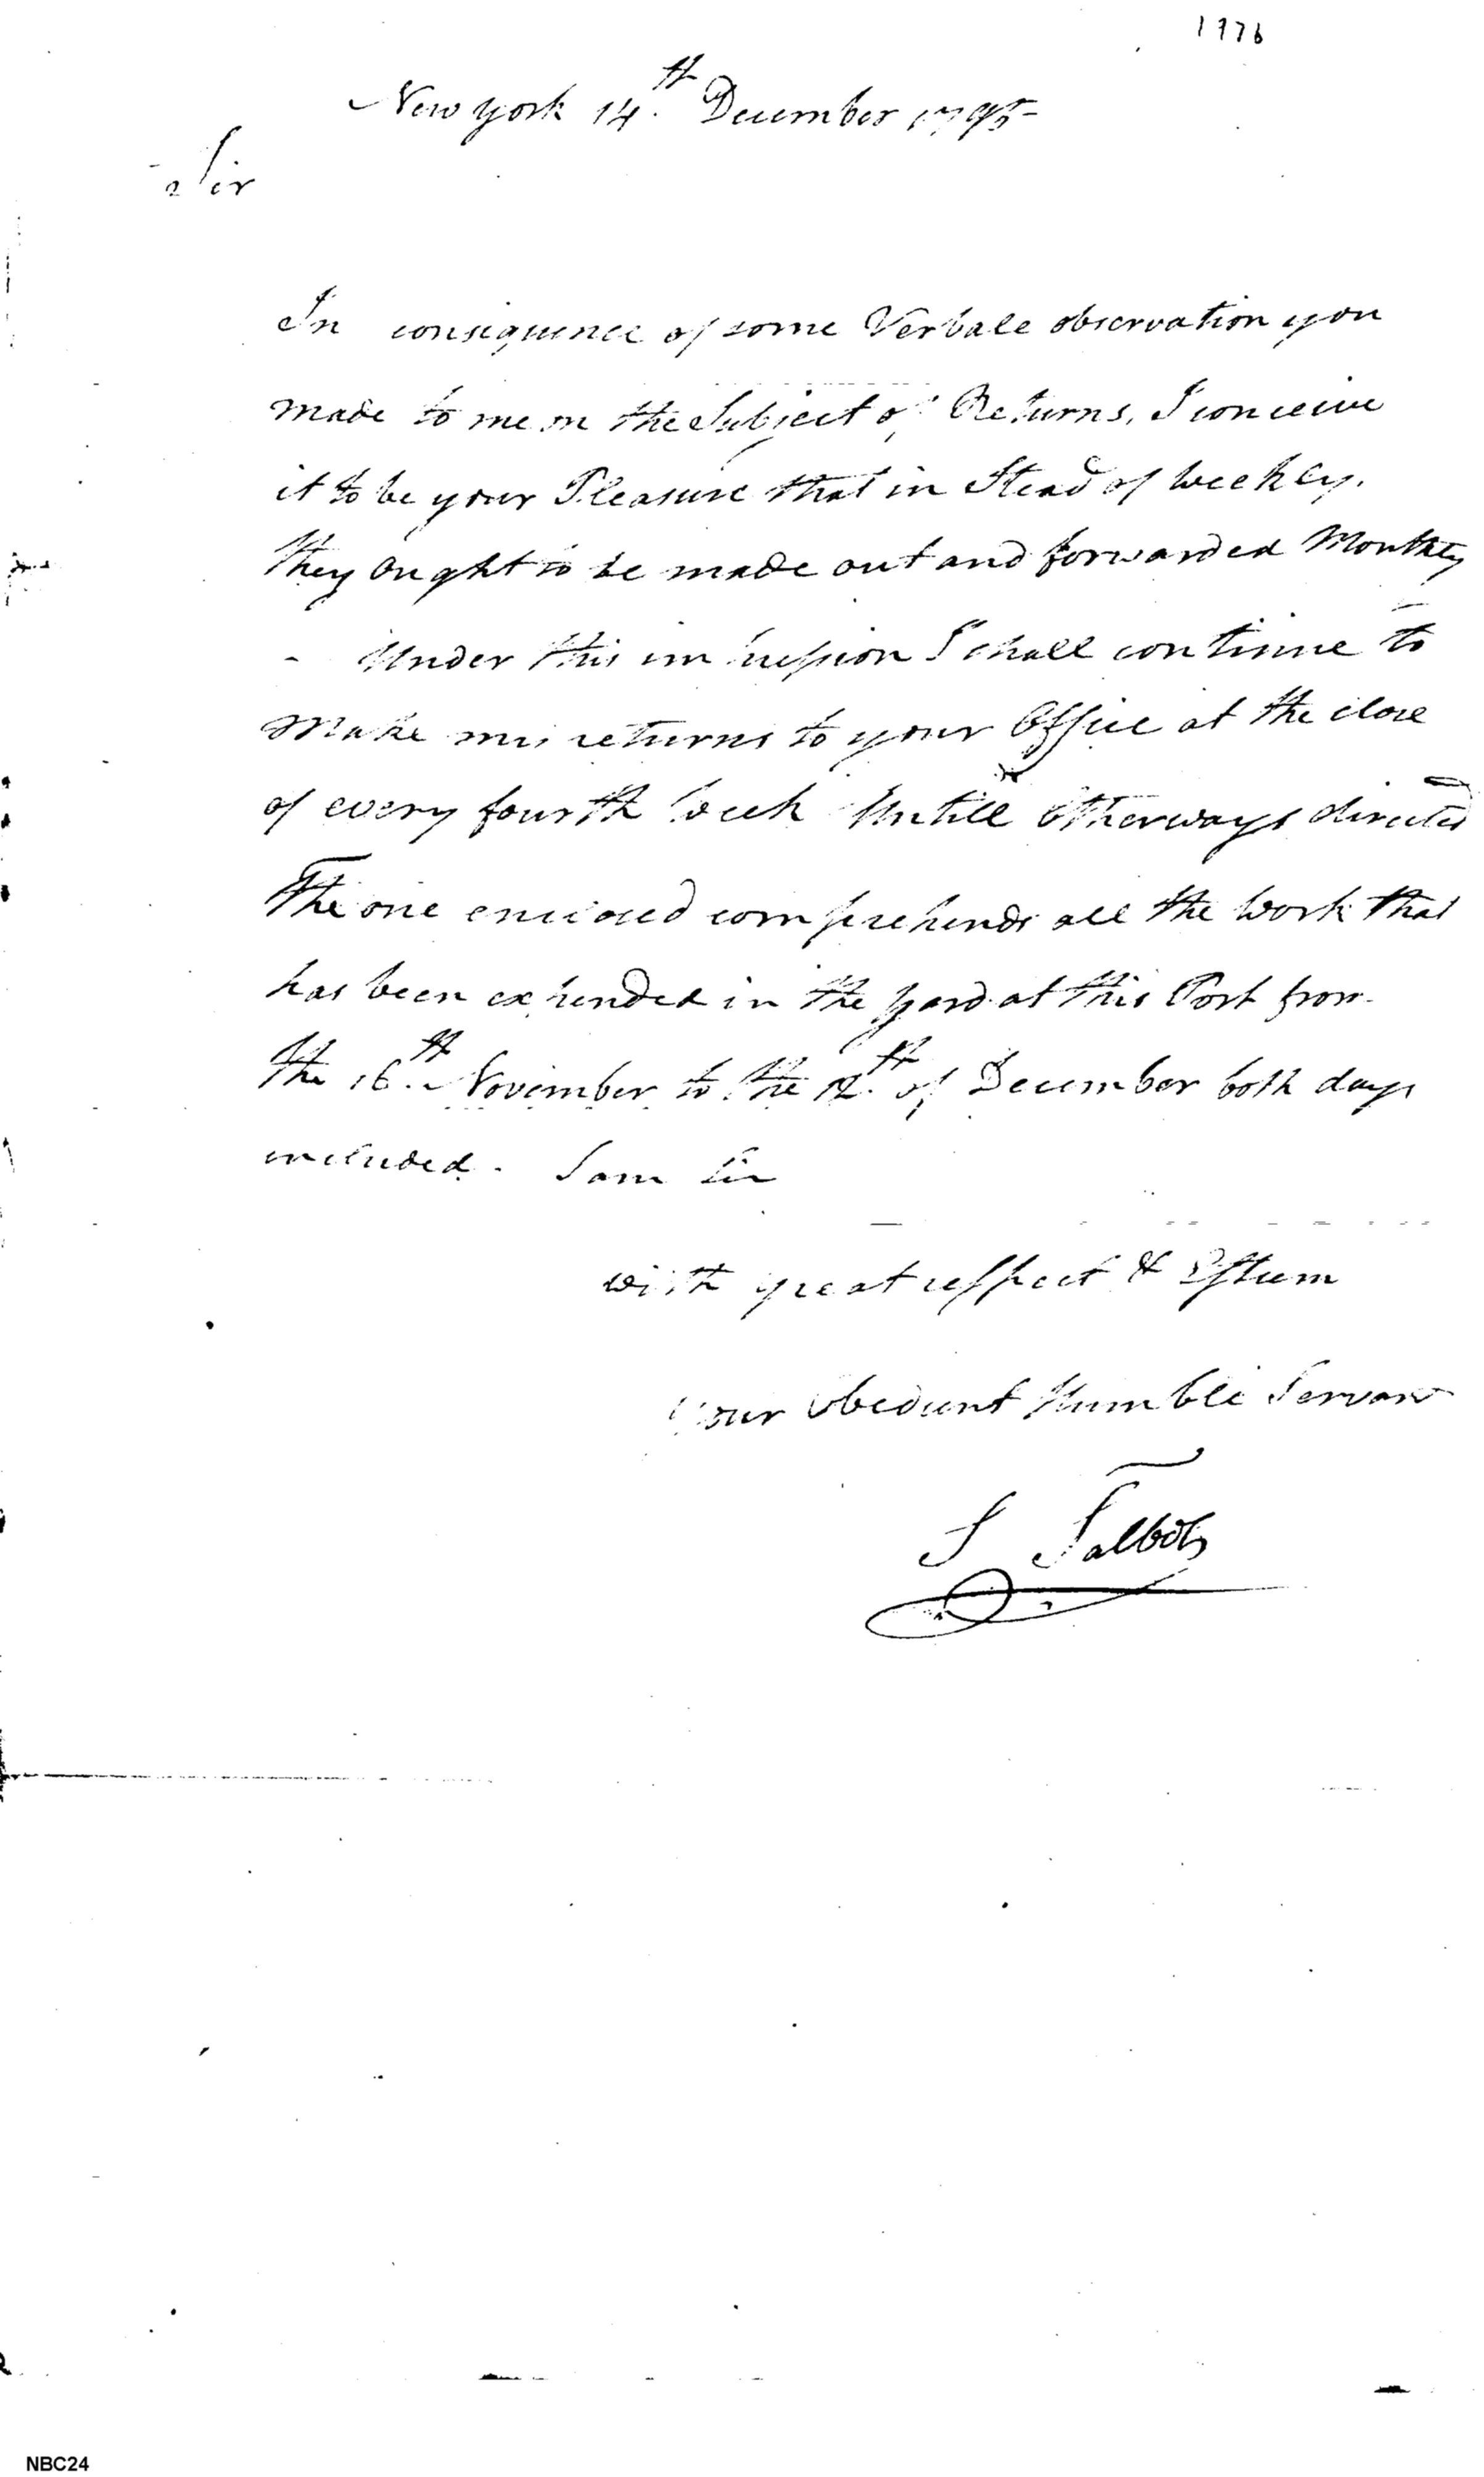 1776
New york 14.th December 1795
Sir
In consequence of some Verbale observation you
made to me on the Subject of Returns, I conceive
it to be your Pleasure that in Stead of weekly.
they ought to be made out and forwarded Monthly
- Under this impression I shall continue to
make my returns to your Office at the close
of every fourth week Untill Otherways directed
The one enclosed comprehends all the work that
has been expended in the yard at this Port from
the 16.th November to the 12.th of December both days
included. I am Sir
with great respect & Esteem
Your Obedient Humble Servant
S Talbot
NBC24